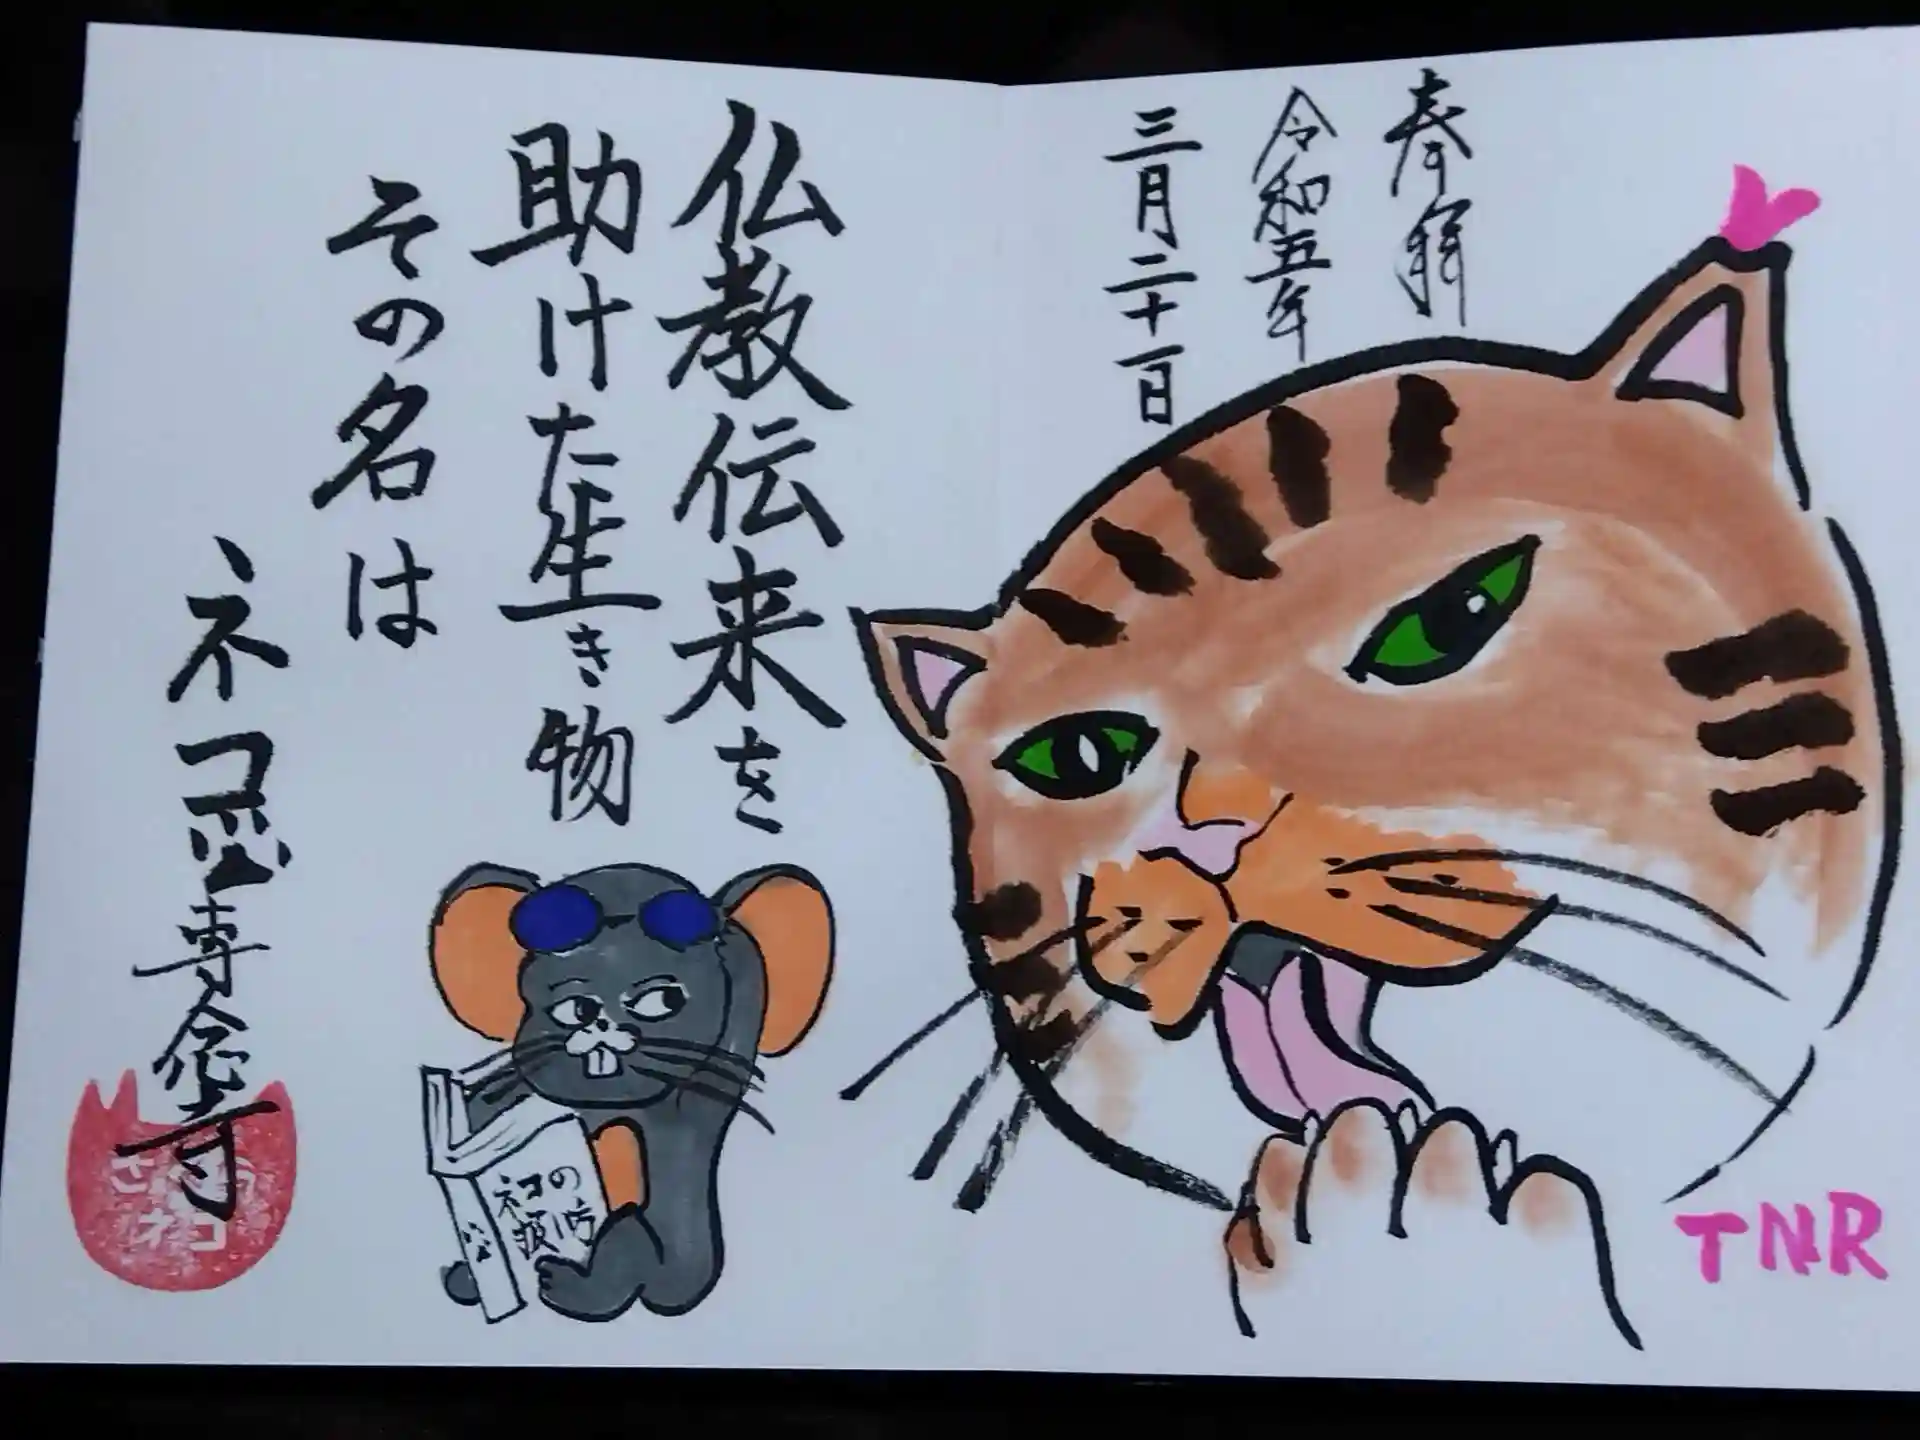 奉拝
令和五年
三月二十一日
仏教伝来を
助けた生き物
その名は
ネコ
専念寺
ネコの
TNR